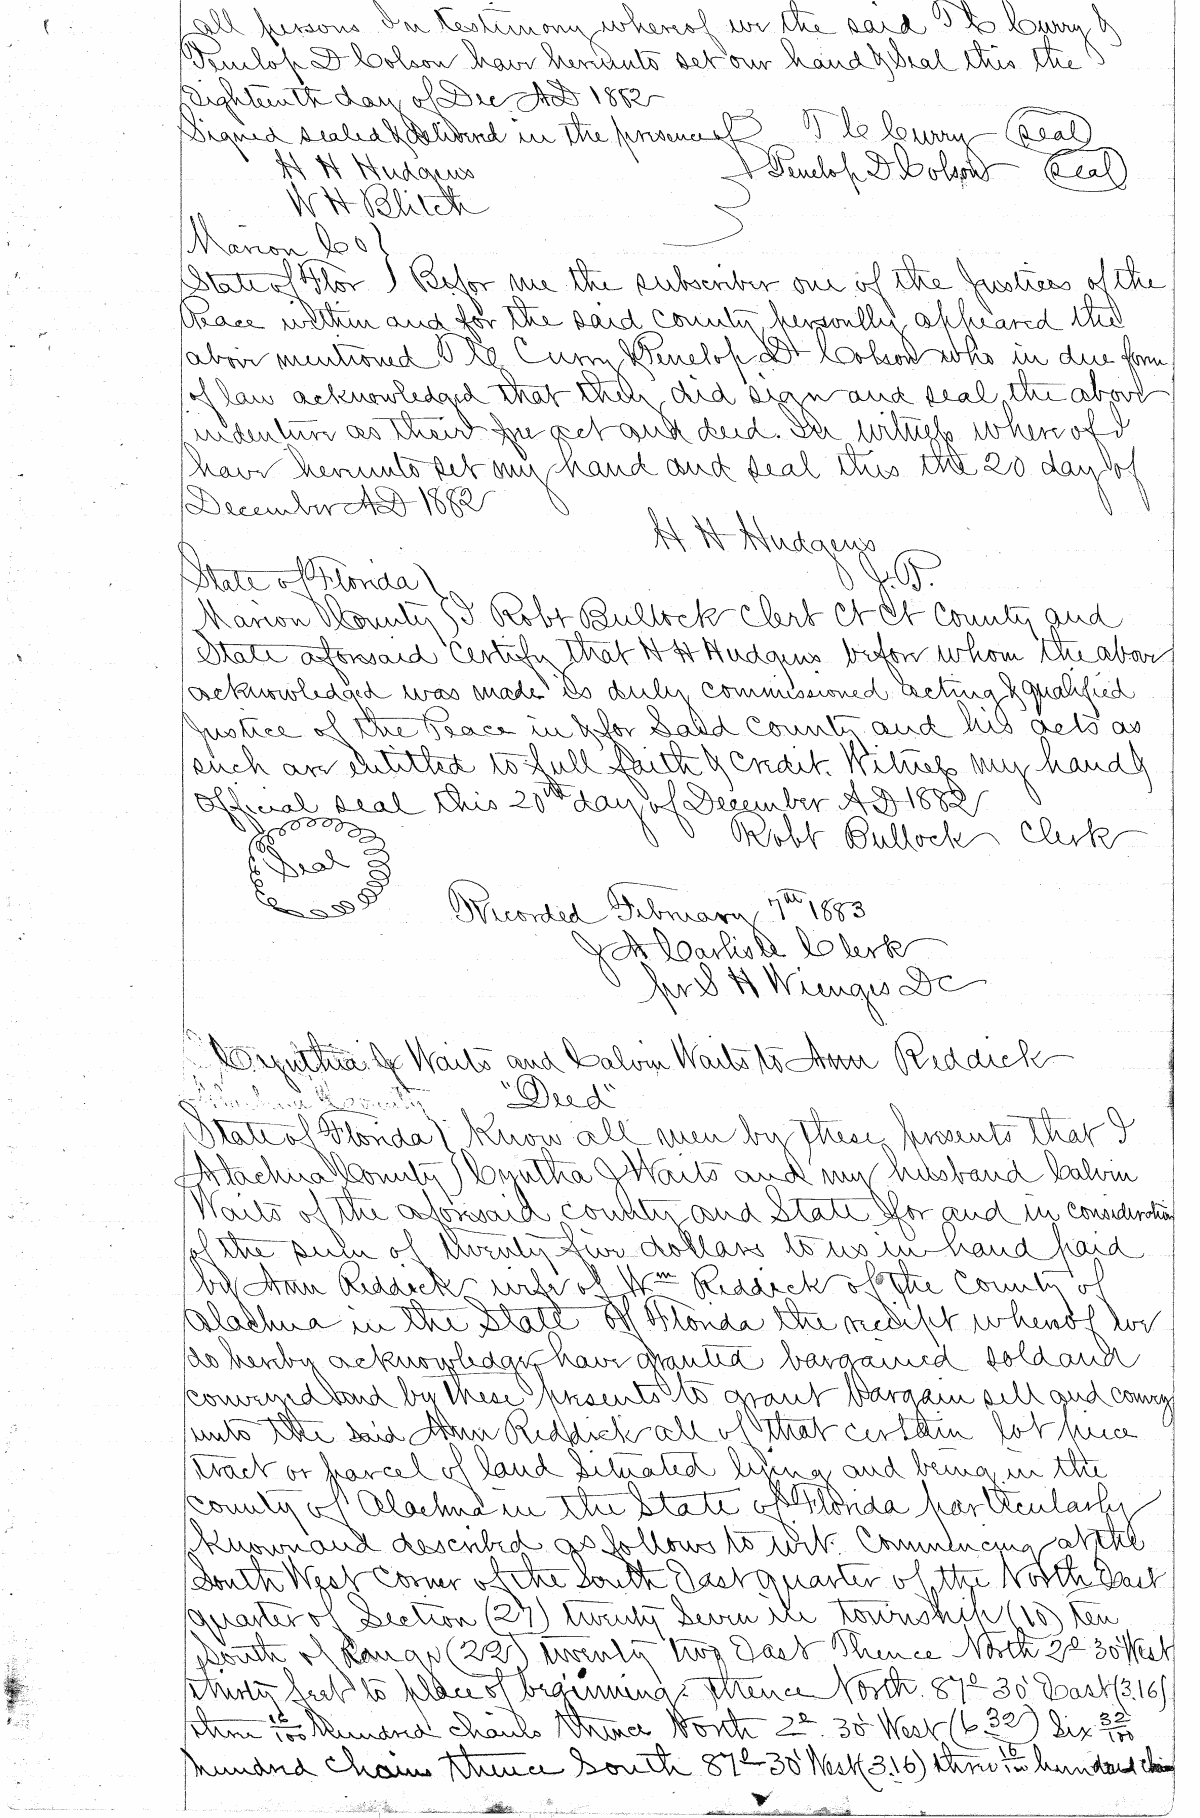 all persons In testimony whereof we the said T C Curry &
Penelop D Colson have herunto set our hand & Seal this the
Eighteenth day of Dec AD 1882
Signed sealed & delivered in the presence of T C Curry (Seal)
H H Hudgens Penelop D Colson (Seal)
W H Blitch
Marion Co }
State of Flor } Befor me the subscriber one of the Justices of the
Peace within and for the said county personlly appeared the
abov mentioned T C Curry & Penelop D Colson who in due form
of law acknowledged that they did sign and seal the above
indenture as their free act and deed. In witness where of I
have herunto set my hand and seal this the 20 day of
December AD 1882
H H Hudgens
J. P.
State of Florida }
Marion County } I Robt Bullock Clerk Ct Ct County and
State aforesaid certify that H H Hudgens before whom the above
acknowledged was made is duly commissioned acting & qualified
Justice of the Peace in & for Said County and his acts as
such are entitled to full faith & credit. Witness my hand &
official seal this 20th day of December AD 1882
Robt Bullock Clerk
Seal
Recorded February 7th 1883
J A Carlisle Clerk
per S H Wienges DC
Cynthia J Waits and Calvin Waits to Ann Reddick
"Deed"
State of Florida } Know all men by these presents that I
Alachua County } Cyntha J Waits and my husband Calvin
Waits of the aforesaid county and State for and in consideration
of the sum of twenty five dollars to us in hand paid
by Ann Reddick wife of Wm Reddick of the County of
Alachua in the State of Florida the receipt whereof we
do hereby acknowledge have granted bargained sold and
conveyed and by these presents to grant bargain sell and convey
unto the said Ann Reddick all of that certain lot piece
tract or parcel of land situated lying and being in the
county of Alachua in the State of Florida particularly
known and described as follows to wit. Commencing at the
South West corner of the South East quarter of the North East
quarter of Section (27) twenty seven in township (10) ten
South of Range (22) twenty two East Thence North 2º 30' West
thirty feet to place of beginning. Thence North 87º 30' East (3.16)
three 16/100 hundred chains thence North 2º. 30' West (6.32) Six 32/100
hundred chains thence South 87º 30' West (3.16) three 16/100 hundred chains